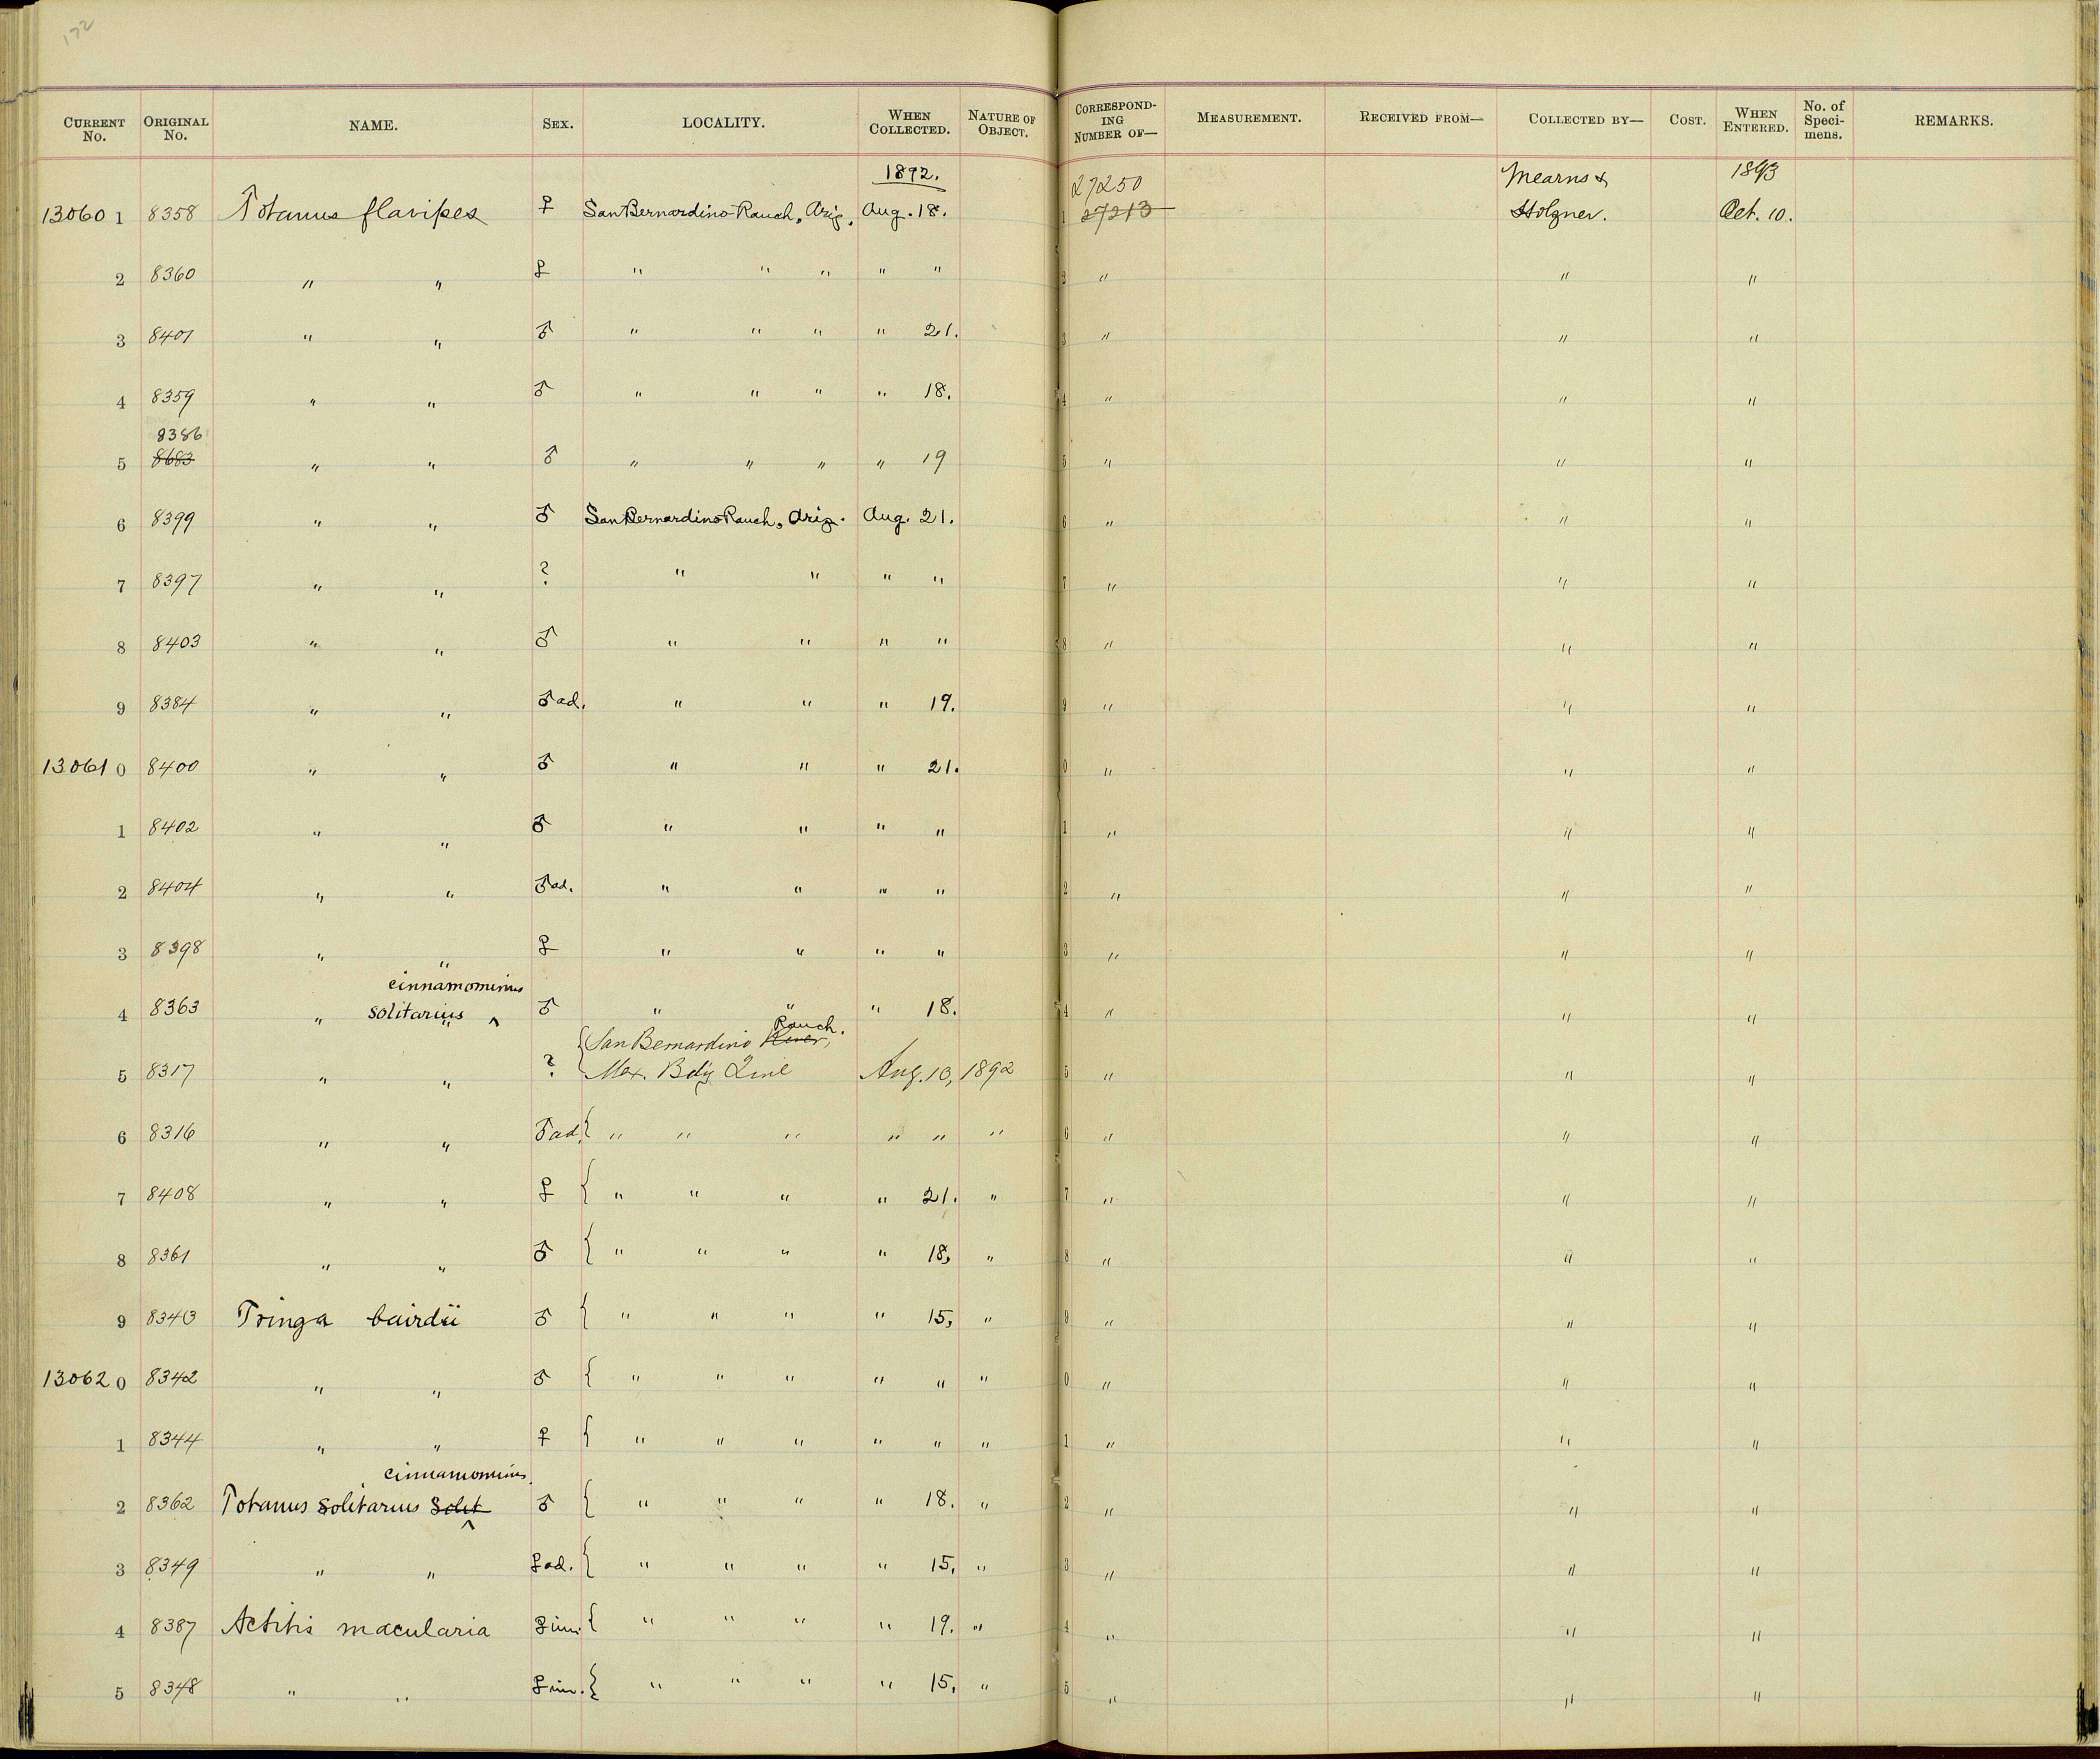 172
CURRENT No. ORIGINAL No. NAME. SEX. LOCALITY. WHEN COLLECTED. NATURE OF OBJECT. CORRESPOND-ING NUMBER OF— MEASUREMENT. RECEIVED FROM— COLLECTED BY— COST. WHEN ENTERED. No. of Speci-mens. REMARKS.
1892. 27250 Mearns & 1893
13060 1 8358 Totanus flavipes ♀ San Bernardino Ranch, Ariz. Aug. 18. 1 27213 Holzner. Oct. 10.
2 8360 " " ♀ " " " " " 2 " " "
3 8401 " " ♂ " " " " 21. 3 " " "
4 8359 " " ♂ " " " " 18. 4 " " "
8386
5 8683 " " ♂ " " " " 19 5 " " "
6 8399 " " ♂ San Bernardino Ranch, Ariz. Aug. 21. 6 " " "
7 8397 " " ? " " " " 7 " " "
8 8403 " " ♂ " " " " 8 " " "
9 8384 " " ♂ ad. " " " 19. 9 " " "
13061 0 8400 " " ♂ " " " 21. 0 " " "
1 8402 " " ♂ " " " " 1 " " "
2 8404 " " ♂ ad. " " " " 2 " " "
3 8398 " " ♀ " " " " 3 " " "
cinnamomeus
4 8363 " solitarius ^ ♂ " " " 18. 4 " " "
Ranch.
{San Bernardino River,
5 8317 " " ? Mex. Bdy Line Aug. 10, 1892 5 " " "
6 8316 " " ♂ ad. { " " " " " " 6 " " "
7 8408 " " ♀ { " " " " 21. " 7 " " "
8 8361 " " ♂ { " " " " 18, " 8 " " "
9 8343 Tringa bairdii ♂ { " " " " 15, " 9 " " "
13062 0 8342 " " ♂ { " " " " " " 0 " " "
1 8344 " " ♀ { " " " " " " 1 " " "
cinnamomeus
2 8362 Totanus solitarius Solit ^ ♂ { " " " " 18. " 2 " " "
3 8349 " " ♀ ad. { " " " " 15, " 3 " " "
4 8387 Actitis macularia ♀ im. { " " " " 19. " 4 " " "
5 8348 " " ♀ im. { " " " " 15, " 5 " " "